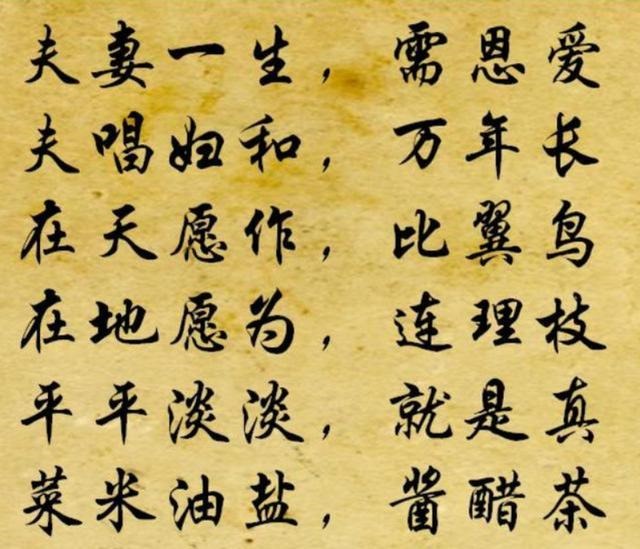 夫妻一生，需恩爱
夫唱妇和，万年长
在天愿作，比翼鸟
在地愿为，连理枝
平平淡淡，就是真
菜米油盐，酱醋茶